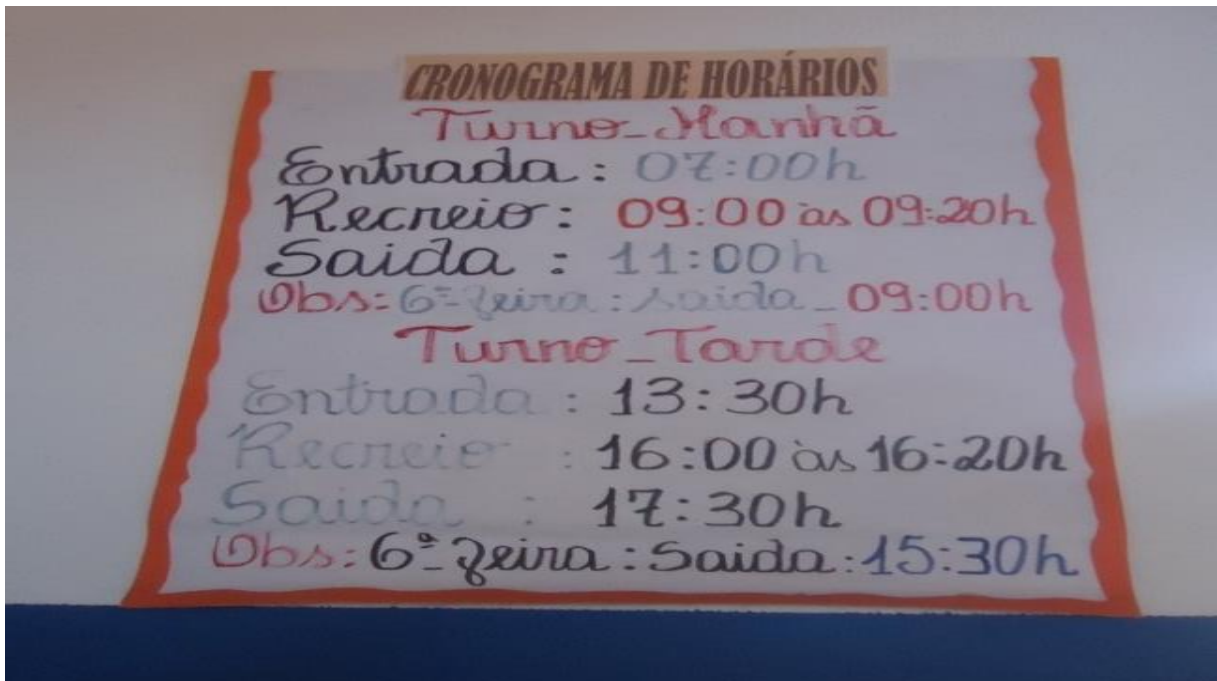 CRONOGRAMA DE HORÁRIOS
Turno_Manhã
Entrada: 07:00h
Recreio: 09:00 às 09:20h
Saida : 11:00h
Obs: 6ª feira: saida_09:00h
Turno_Tarde
Entrada: 13:30h
Recreio : 16:00 às 16:20h
Saida : 17:30h
Obs: 6ª feira: Saida: 15:30h